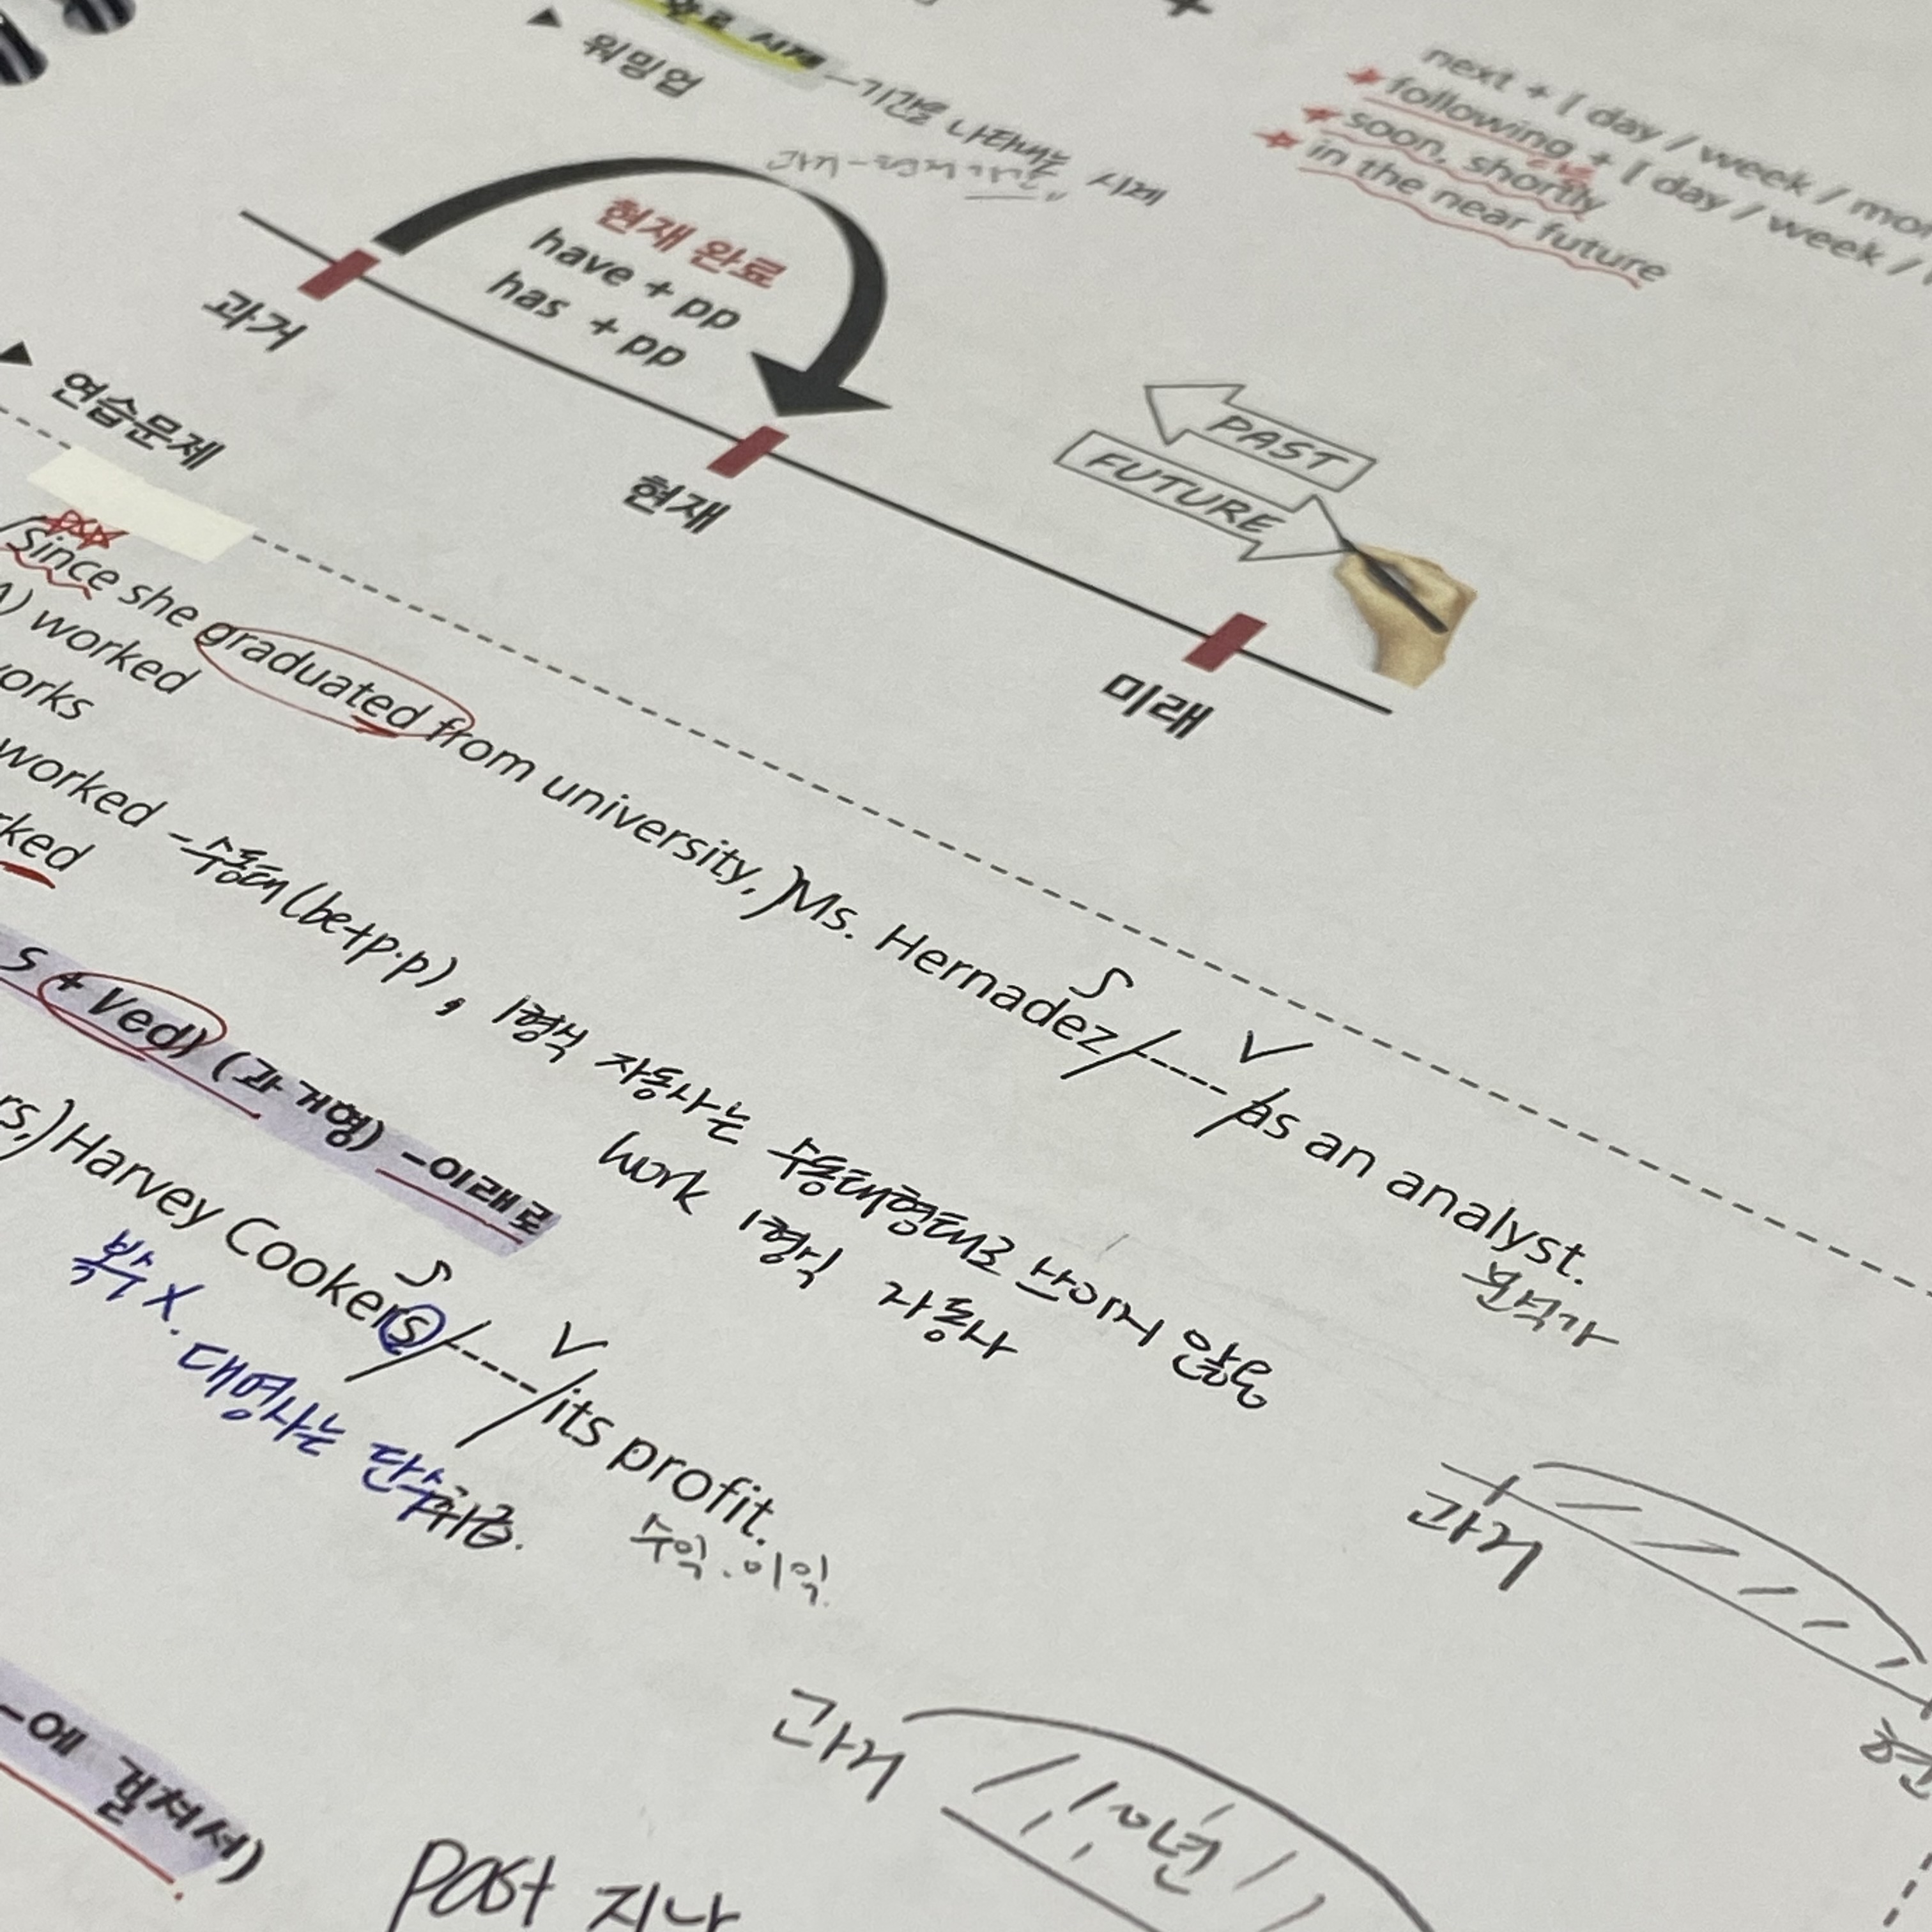 완료 시제 -기간을 나타내는 시제
▲ 워밍업
과거-현재
next + [ day / week /
following + [ day / week /
soon, shortly
in the near future
현재 완료
have + pp
has + pp
과거
현재
미래
PAST
FUTURE
▲ 연습문제
Since she graduated from university, Ms. Hernadez ----- as an analyst.
S V
분석가
worked
worked -수동태(be+p.p), 1형식 자동사는 수동태형태로 쓰이지 않음
work 1형식 자동사
S + Ved) (과거형) -이래로
Harvey Cookers ----- its profit.
S V
복수 X. 대명사는 단수취급.
수익.이익.
과거
과거
-에 걸쳐서)
past